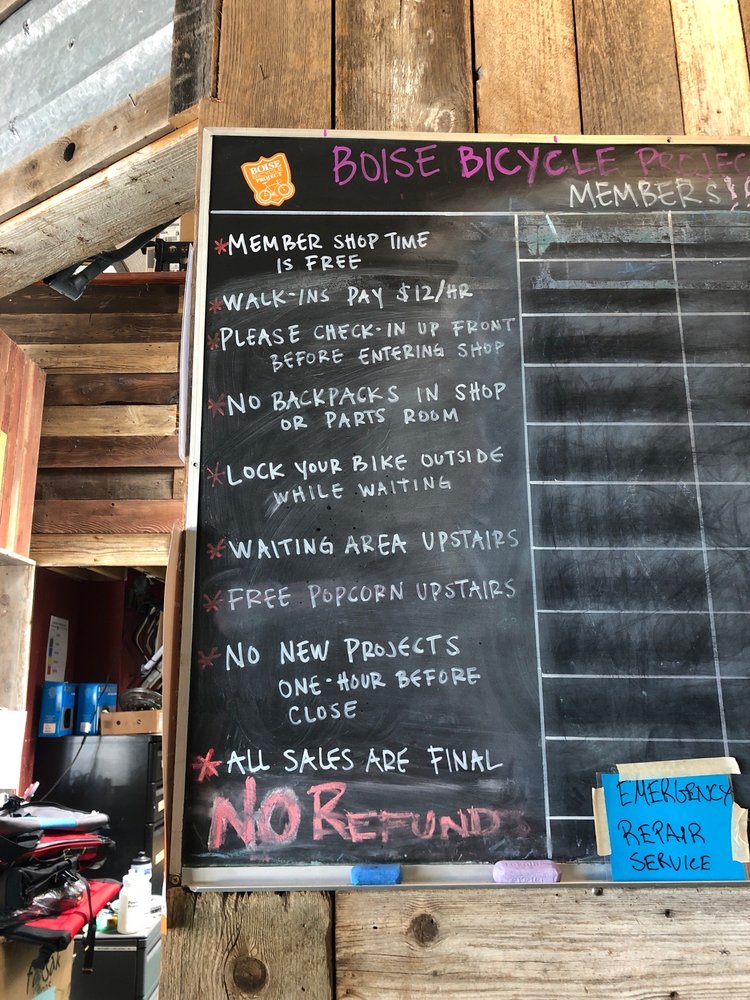 BOISE
PROJECT
BOISE BICYCLE PROJEC
MEMBERS!!
*MEMBER SHOP TIME
IS FREE
*WALK-INS PAY $12/HR
*PLEASE CHECK-IN UP FRONT
BEFORE ENTERING SHOP
*NO BACKPACKS IN SHOP
OR PARTS ROOM
*LOCK YOUR BIKE OUTSIDE
WHILE WAITING
*WAITING AREA UPSTAIRS
*FREE POPCORN UPSTAIRS
*NO NEW PROJECTS
ONE-HOUR BEFORE
CLOSE
*ALL SALES ARE FINAL
NO REFUNDS
EMERGENCY
REPAIR
SERVICE